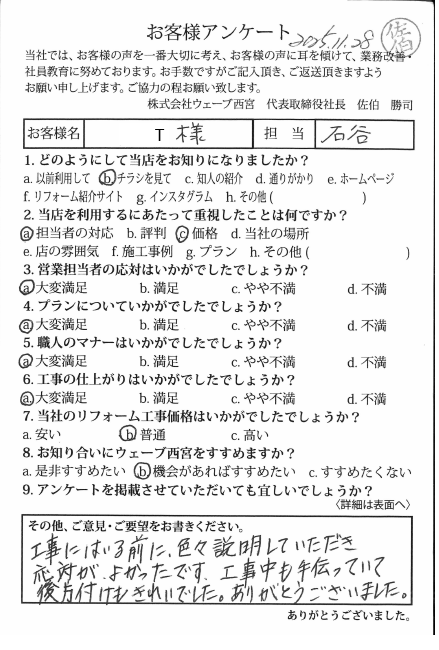 お客様アンケート 2025.11.28 佐伯
当社では、お客様の声を一番大切に考え、お客様の声に耳を傾けて、業務改善・
社員教育に努めております。お手数ですがご記入頂き、ご返送頂きますよう
お願い申し上げます。ご協力の程お願い致します。
株式会社ウェーブ西宮 代表取締役社長 佐伯 勝司
お客様名 T 様 担当 石谷
1. どのようにして当店をお知りになりましたか？
a. 以前利用して b チラシを見て c. 知人の紹介 d. 通りがかり e. ホームページ
f. リフォーム紹介サイト g. インスタグラム h. その他 ( )
2. 当店を利用するにあたって重視したことは何ですか？
a 担当者の対応 b. 評判 c 価格 d. 当社の場所
e. 店の雰囲気 f. 施工事例 g. プラン h. その他 ( )
3. 営業担当者の応対はいかがでしたでしょうか？
a 大変満足 b. 満足 c. やや不満 d. 不満
4. プランについていかがでしたでしょうか？
a 大変満足 b. 満足 c. やや不満 d. 不満
5. 職人のマナーはいかがでしたでしょうか？
a 大変満足 b. 満足 c. やや不満 d. 不満
6. 工事の仕上がりはいかがでしたでしょうか？
a. 大変満足 b. 満足 c. やや不満 d. 不満
7. 当社のリフォーム工事価格はいかがでしたでしょうか？
a. 安い b 普通 c. 高い
8. お知り合いにウェーブ西宮をすすめますか？
a. 是非すすめたい b 機会があればすすめたい c. すすめたくない
9. アンケートを掲載させていただいても宜しいでしょうか？
〈詳細は表面へ〉
その他、ご意見・ご要望をお書きください。
工事にはいる前に、色々説明していただき
応対が、よかったです。工事中も手伝っていて
後片付けもきれいでした。ありがとうございました。
ありがとうございました。